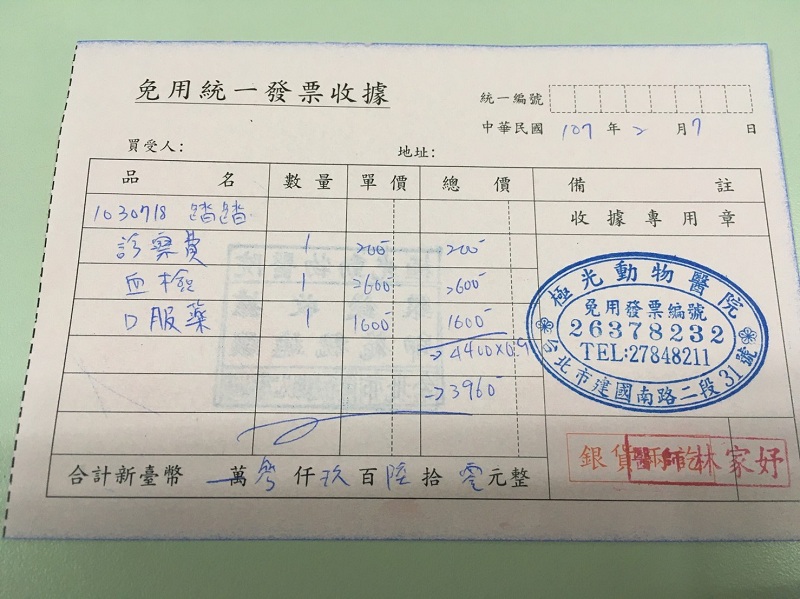 免用統一發票收據
統一編號
中華民國 107 年 2 月 7 日
買受人: 地址:
品名 數量 單價 總價 備註
1030718 踏踏
收據專用章
診察費 1 200 200
血檢 1 2600 2600
口服藥 1 1600 1600
→4400×0.9
→3960
極光動物醫院
免用發票編號
26378232
TEL:27848211
台北市建國南路二段31號
合計新臺幣 萬 參 仟 玖 百 陸 拾 零 元整
銀貨兩訖
醫師 林家妤